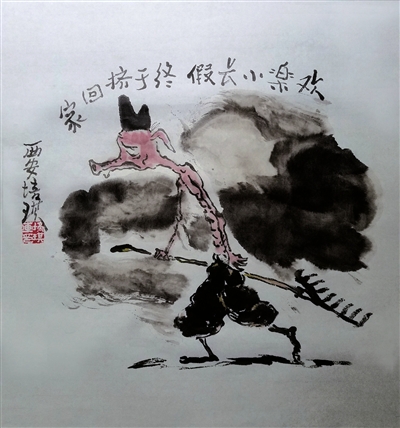 欢楽小长假 终于挤回家
西安培